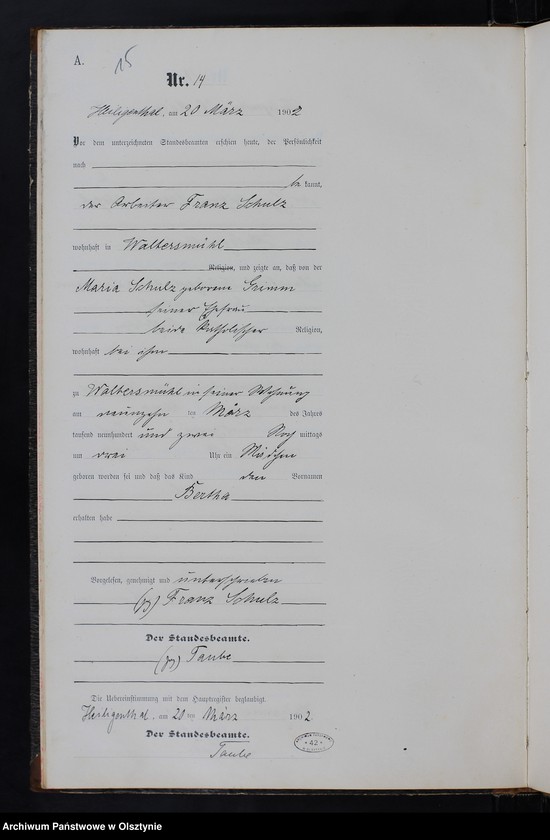 A.
15
Nr. 14
Heiligenthal, am 20 März 1902
Vor dem unterzeichneten Standesbeamten erschien heute, der Persönlichkeit
nach
be kannt,
der Arbeiter Franz Schulz
wohnhaft in Waltersmühl
Religion, und zeigte an, daß von der
Maria Schulz geborene Grimm
seiner Ehefrau
beide katholischer Religion,
wohnhaft bei ihm
zu Waltersmühl in seiner Wohnung
am neunzehn ten März des Jahres
tausend neunhundert und zwei Nach mittags
um drei Uhr ein Mädchen
geboren worden sei und daß das Kind den Vornamen
Bertha
erhalten habe
Vorgelesen, genehmigt und unterschrieben
(gz) Franz Schulz
Der Standesbeamte.
(gz) Taube
Die Uebereinstimmung mit dem Hauptregister beglaubigt.
Heiligenthal, am 20 ten März 1902
Der Standesbeamte.
Taube
42
Archiwum Państwowe w Olsztynie